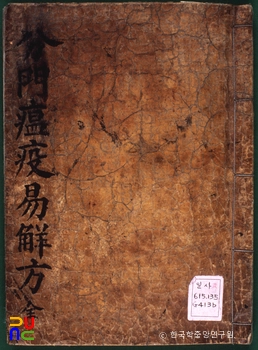 分門瘟疫易解方 全
일사
615.135
ⓒ 한국학중앙연구원